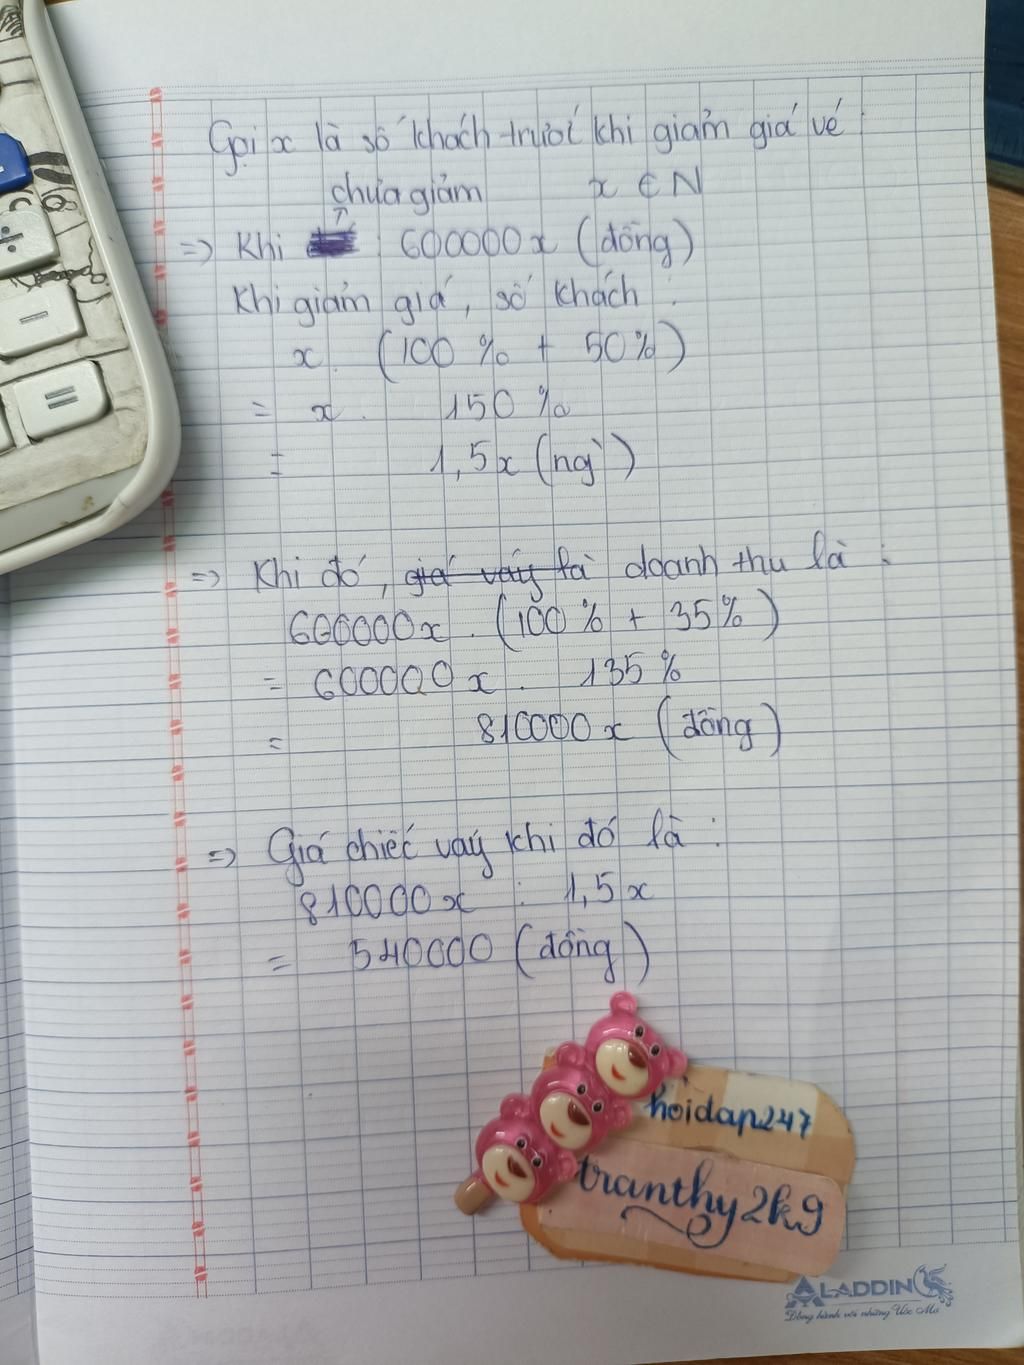 Gọi x là số khách trước khi giảm giá vé
chưa giảm x ∈ N
=> Khi : 600000x (đồng)
Khi giảm giá, số khách :
x . (100 % + 50%)
= x . 150 %
= 1,5x (ng`)
=> Khi đó, giá váy là doanh thu là :
600000x . (100 % + 35%)
= 600000x . 135 %
= 810000x (đồng)
=> Giá chiếc váy khi đó là :
810000x : 1,5x
= 540000 (đồng)
hoidap247
tranthy2k9
ALADDIN
Đồng hành với những Ước Mơ
÷
−
=